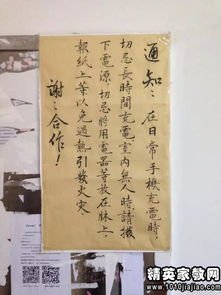 通知：在日常手機充電時，
切忌長時間充電室內無人時請拔
下電源，切忌將用電器等放在牀上，
報紙上等以免過熱引發火災，
謝：合作！
精英家教网
www.1010jiajiao.com